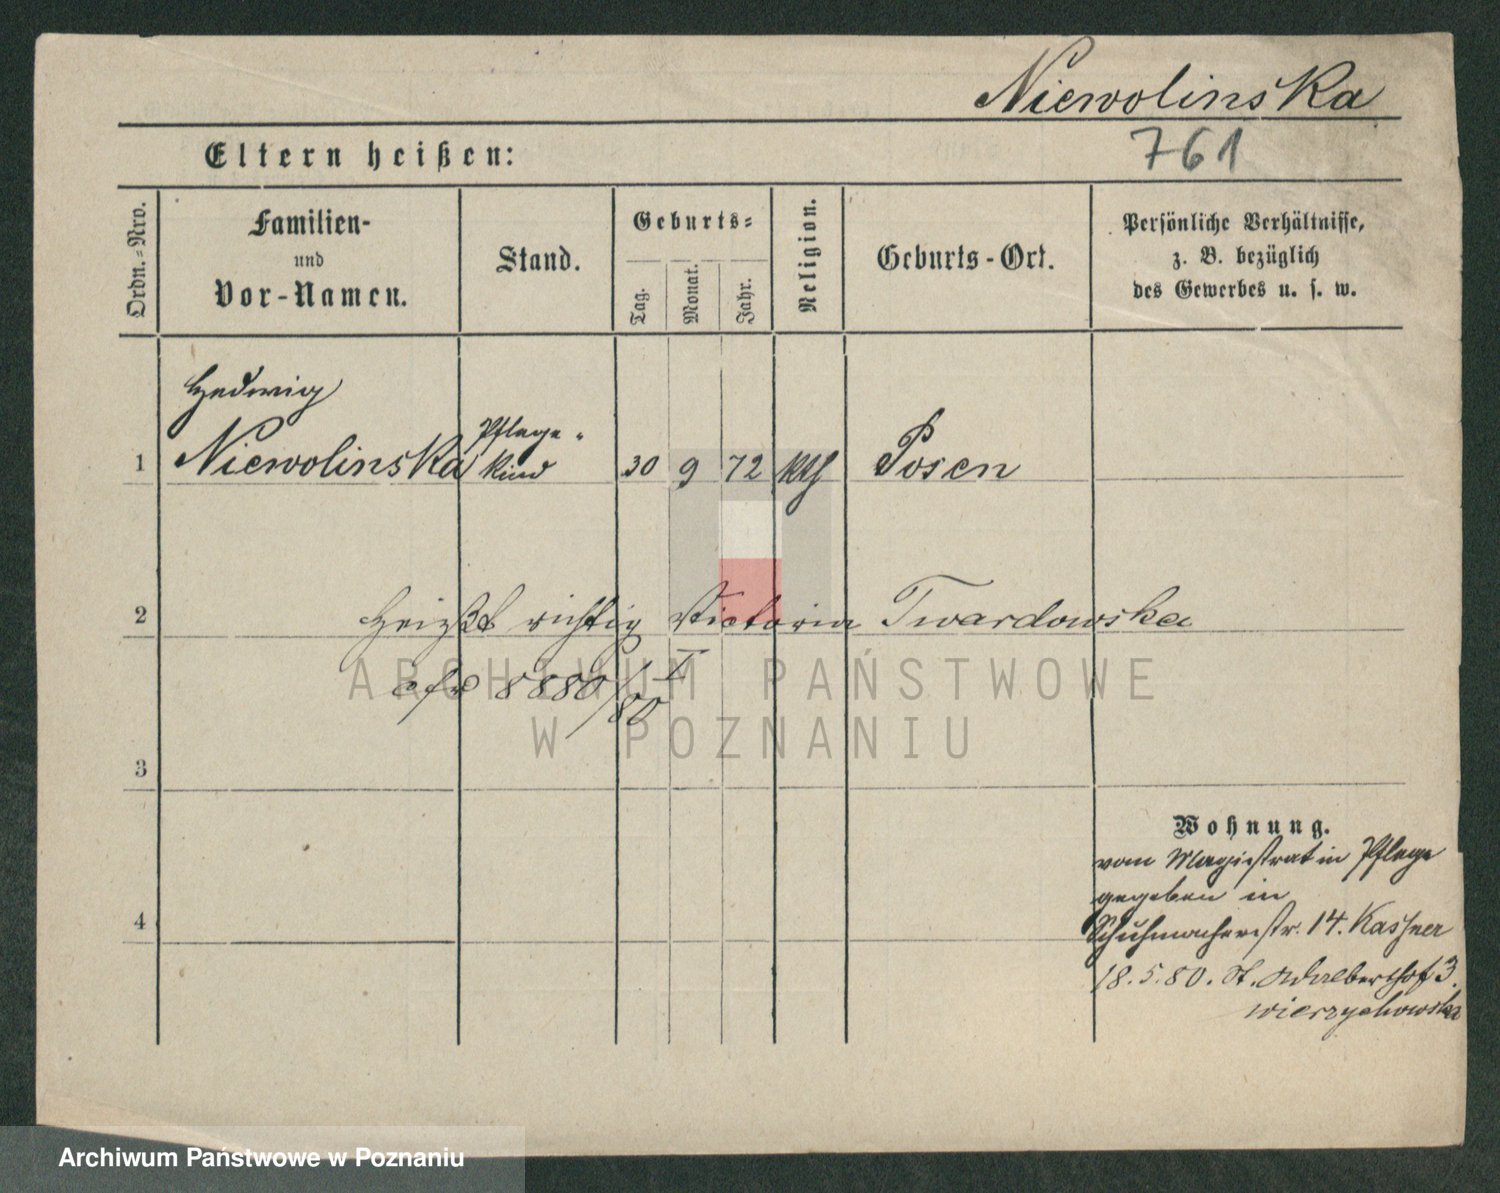 Niewolinska
761
Eltern heißen:
Ordn.-Nro.
Familien-
und
Vor-Namen.
Stand.
Geburts-
Tag.
Monat.
Jahr.
Religion.
Geburts-Ort.
Persönliche Verhältnisse,
z. B. bezüglich
des Gewerbes u. s. w.
Hedwig
Pflege-
1 Niewolinska kind 30 9 72 kth Posen
2 Heißt richtig Victoria Twardowska
8880/80 I
ARCHIWUM PAŃSTWOWE
W POZNANIU
3
Wohnung.
vom Magistrat in Pflege
gegeben in
4
Schuhmacherstr. 14. Kassner
18.5.80. St. Adalberthof 3.
Wierzychowska
Archiwum Państwowe w Poznaniu